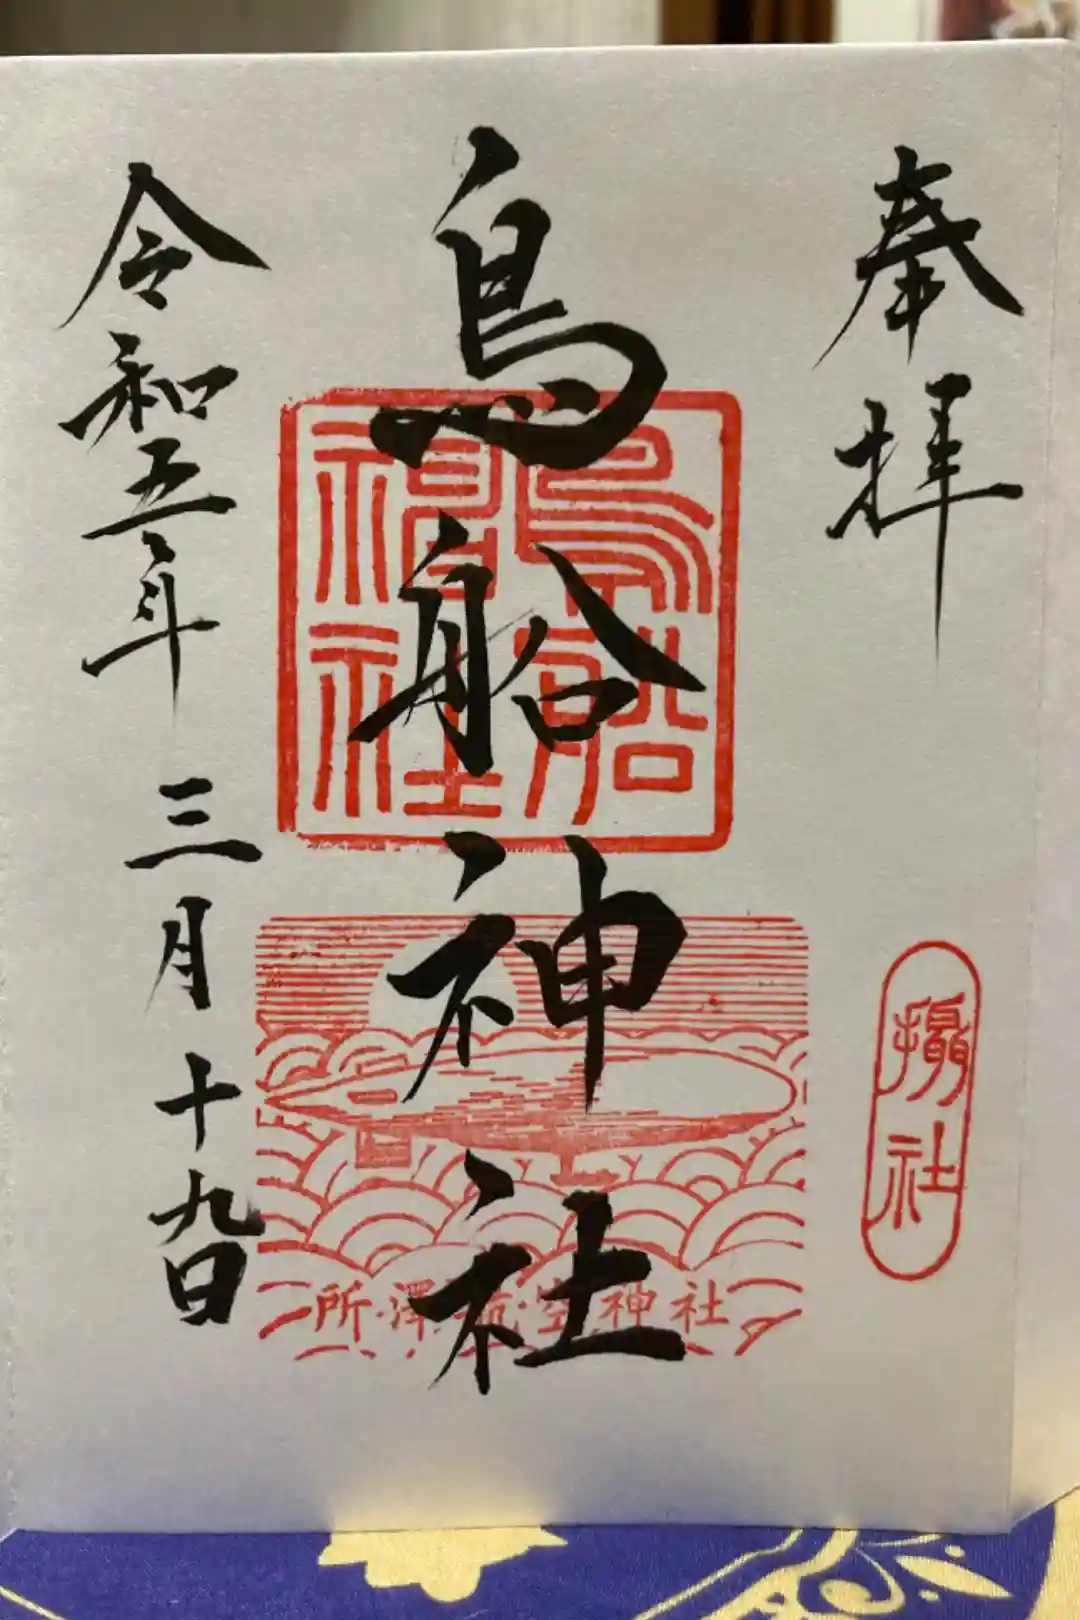 奉拝
攝社
鳥船神社
鳥船神社
所澤航空神社
令和五年三月十九日